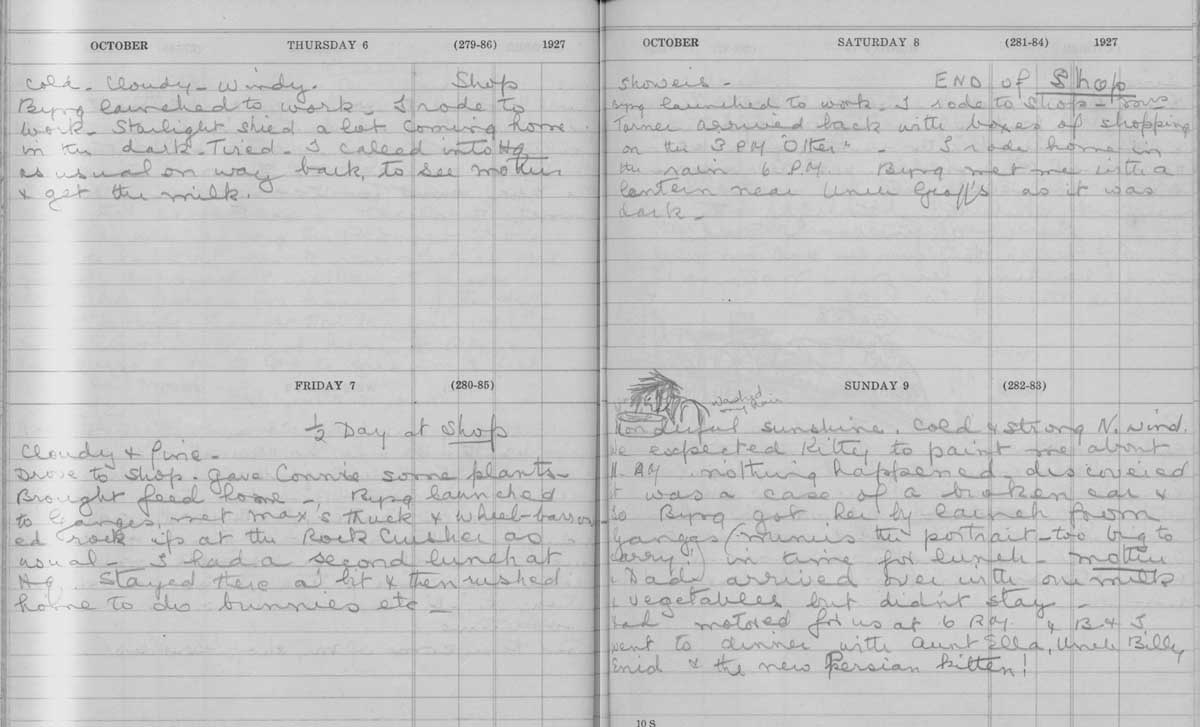 OCTOBER THURSDAY 6 (279-86) 1927
Cold. Cloudy - Windy. Shop
Byng launched to work. I rode to
work. Starlight shied a lot coming home
in the dark. Tired. I called into HQ
as usual on way back, to see mother
& get the milk.
FRIDAY 7 (280-85)
½ Day at Shop
Cloudy & Fine -
Drove to shop. Gave Connie some plants -
Brought feed home - Byng launched
to Ganges, met Max's truck & wheel-barrow
ed rock up at the Rock Crusher as
usual - I had a second lunch at
HQ. Stayed there a bit & then rushed
home to do bunnies etc -
OCTOBER SATURDAY 8 (281-84) 1927
Showers - END of Shop
Byng launched to work. I rode to shop -
Turner arrived back with boxes of shopping
on the 3 PM "Otter" - I rode home in
the rain 6 P.M. Byng met me with a
lantern near Uncle Geoff's as it was
dark -
SUNDAY 9 (282-83)
washed
my hair
Wonderful sunshine. Cold & strong N. wind.
We expected Kitty to paint me about
11. AM nothing happened discovered
it was a case of a broken car &
so Byng got her by launch from
Ganges (minus the portrait - too big to
carry!) in time for lunch - Mother
& Dad arrived over with our milk
& vegetables but didn't stay -
Dad motored for us at 6 P.M. & B & I
went to dinner with Aunt Ella, Uncle Billy
Enid & the new Persian kitten!
10 S